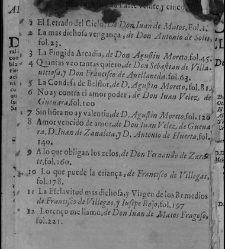 2 El Letrado del Cielo, de Don Juan de Matos, Fol. 1.
2 La mas dichosa vengança, de Don Antonio de Solis,
fol. 23.
3 La Fingida Arcadia, de Don Agustin Moreto, fol. 45.
4 Quantas veo tantas quiero, de Don Sebastian de Villa
viciosa, y Don Francisco de Avellaneda, fol. 63.
5 La Condesa de Belflor, de D. Agustin Moreto, fol. 81.
6 No ay contra el amor poder, de Don Juan Velez de
Guevara, fol. 100
7 Sin honra no ay valentia, de D. Agustin Moreto, fol. 120
8 Amor vencido de amor, de Don Juan Velez de Gueva
ra, D. Juan de Zavaleta, y D. Antonio de Huerta, fol.
140.
9 A lo que obligan los zelos, de Don Fernando de Zara
te, fol. 160.
10 Lo que puede la criança, de Francisco de Villegas,
fol. 178.
11 La Esclavitud mas dichosa, y Virgen de los Remedios
de Francisco de Villegas, y Jusepe Rojo, fol. 197
12 Lorenço me llamo, de Don Juan de Matos Fragoso,
fol. 221.